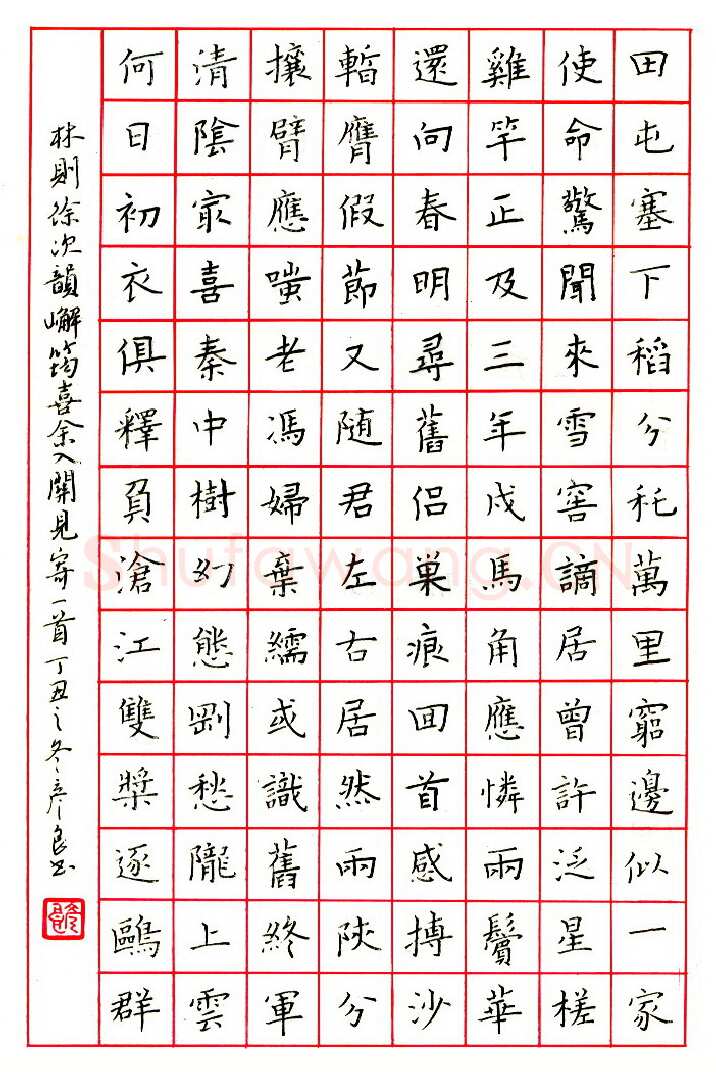 田屯塞下稻分秅萬里窮邊似一家
使命驚聞來雪窖謫居曾許泛星槎
雞竿正及三年戍馬角應憐兩鬢華
還向春明尋舊侶巢痕囬首感摶沙
暫膺假節又随君左右居然兩陝分
攘臂應嗤老馮婦棄繻或識舊終軍
清陰冣喜秦中樹幻態剛愁隴上雲
何日初衣俱釋負滄江雙槳逐鷗群
林則徐次韻嶰筠喜余入關見寄一首丁丑之冬彦良书
Shufawang.CN